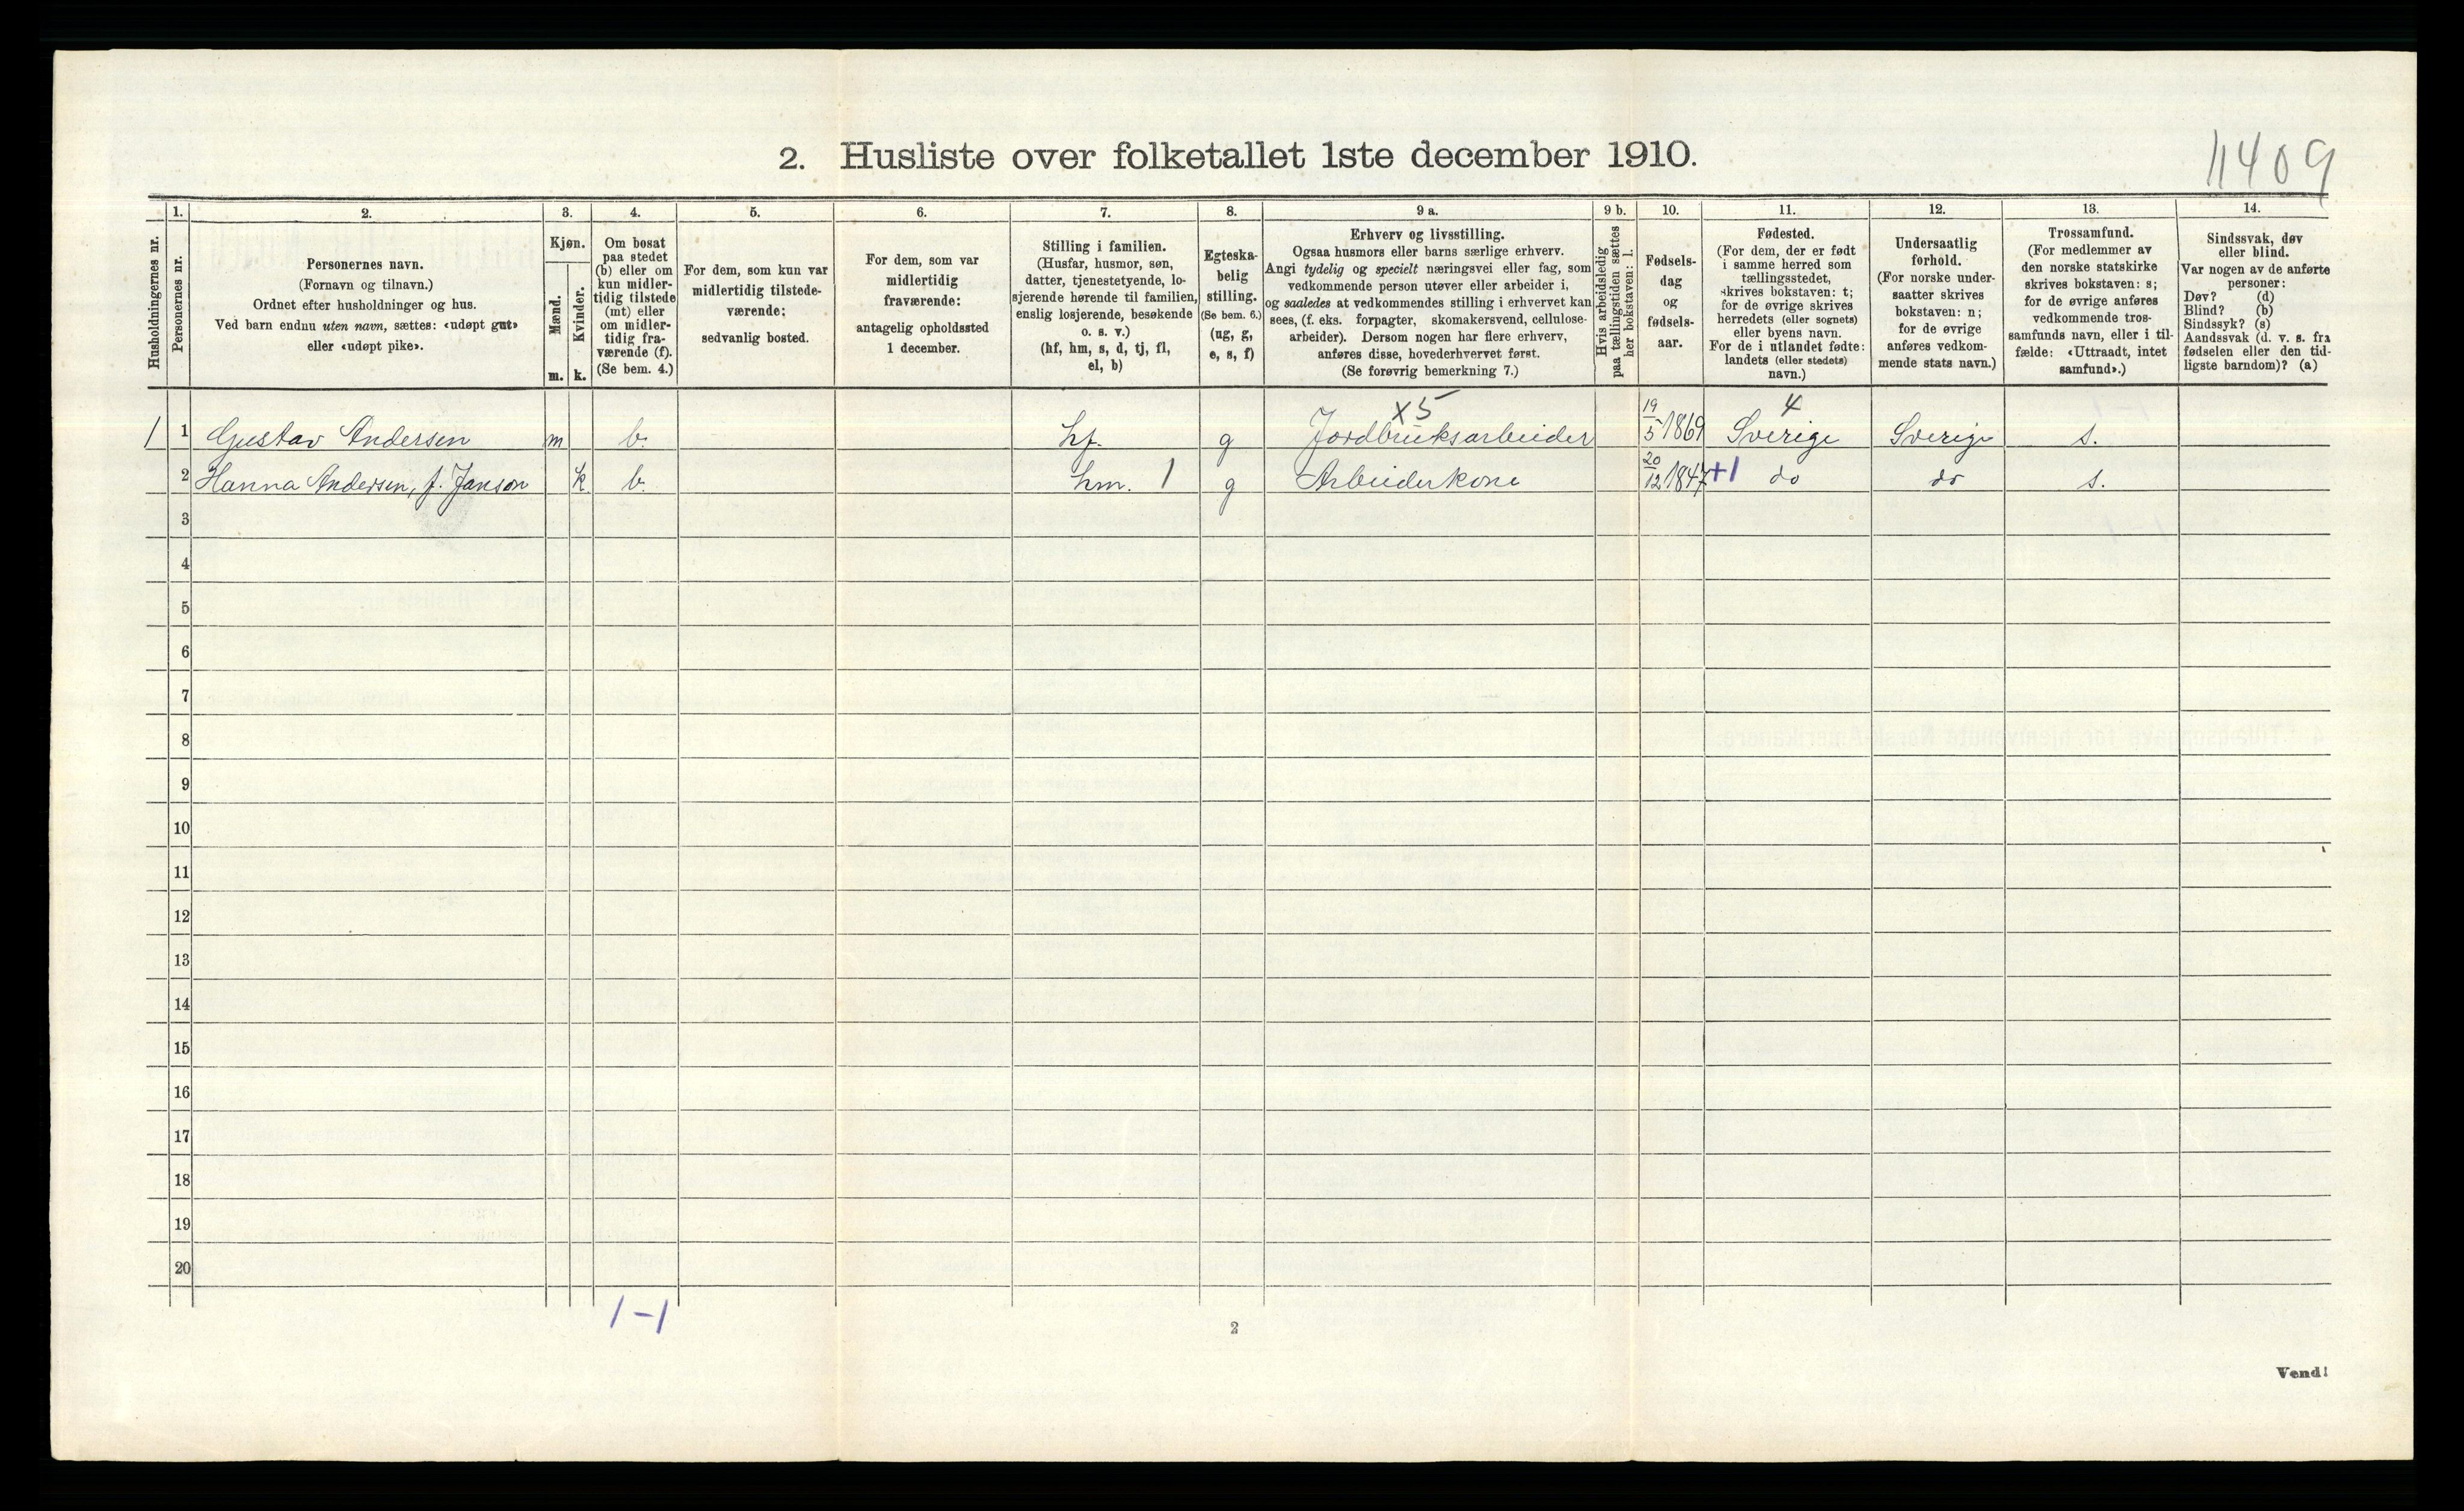 2. Husliste over folketallet 1ste december 1910.
11409
Husholdningernes nr.
1.
Personernes nr.
2.
Personernes navn.
(Fornavn og tilnavn.)
Ordnet efter husholdninger og hus.
Ved barn endnu uten navn, sættes: «udøpt gut»
eller «udøpt pike».
3.
Kjøn.
Mænd.
m.
Kvinder.
k.
4.
Om bosat
paa stedet
(b) eller om
kun midler-
tidig tilstede
(mt) eller
om midler-
tidig fra-
værende (f).
(Se bem. 4.)
5.
For dem, som kun var
midlertidig tilstede-
værende;
sedvanlig bosted.
6.
For dem, som var
midlertidig
fraværende:
antagelig opholdssted
1 december.
7.
Stilling i familien.
(Husfar, husmor, søn,
datter, tjenestetyende, lo-
sjerende hørende til familien,
enslig losjerende, besøkende
o. s. v.)
(hf, hm, s, d, tj, fl,
el, b)
8.
Egteska-
belig
stilling.
(Se bem. 6.)
(ug, g,
e, s, f)
9 a.
Erhverv og livsstilling.
Ogsaa husmors eller barns særlige erhverv.
Angi tydelig og specielt næringsvei eller fag, som
vedkommende person utøver eller arbeider i,
og saaledes at vedkommendes stilling i erhvervet kan
sees, (f. eks. forpagter, skomakersvend, cellulose-
arbeider). Dersom nogen har flere erhverv,
anføres disse, hovederhvervet først.
(Se forøvrig bemerkning 7.)
9 b.
Hvis arbeidsledig
paa tællingstiden sættes
her bokstaven: l.
10.
Fødsels-
dag
og
fødsels-
aar.
11.
Fødested.
(For dem, der er født
i samme herred som
tællingsstedet,
skrives bokstaven: t;
for de øvrige skrives
herredets (eller sognets)
eller byens navn.
For de i utlandet fødte:
landets (eller stedets)
navn.)
12.
Undersaatlig
forhold.
(For norske under-
saatter skrives
bokstaven: n;
for de øvrige
anføres vedkom-
mende stats navn.)
13.
Trossamfund.
(For medlemmer av
den norske statskirke
skrives bokstaven: s;
for de øvrige anføres
vedkommende tros-
samfunds navn, eller i til-
fælde: «Uttraadt, intet
samfund».)
14.
Sindssvak, døv
eller blind.
Var nogen av de anførte
personer:
Døv? (d)
Blind? (b)
Sindssyk? (s)
Aandssvak (d. v. s. fra
fødselen eller den tid-
ligste barndom)? (a)
x5 4
1 1 Gustav Andersen m b. hf. g Jordbruksarbeider 19/5 1869 Sverige Sverige s.
2 Hanna Andersen, f. Janson k b. hm. 1 g Arbeiderkone 20/12 1847 +1 do do s.
3
4
5
6
7
8
9
10
11
12
13
14
15
16
17
18
19
20
1-1
2
Vend!